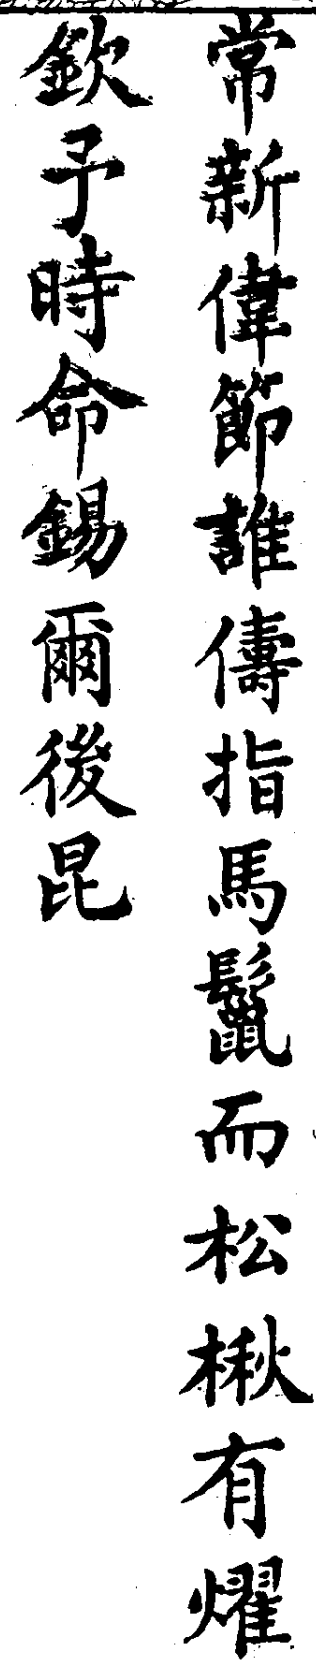 常新偉節誰儔指馬鬣而松楸有燿
欽予時命錫爾後昆